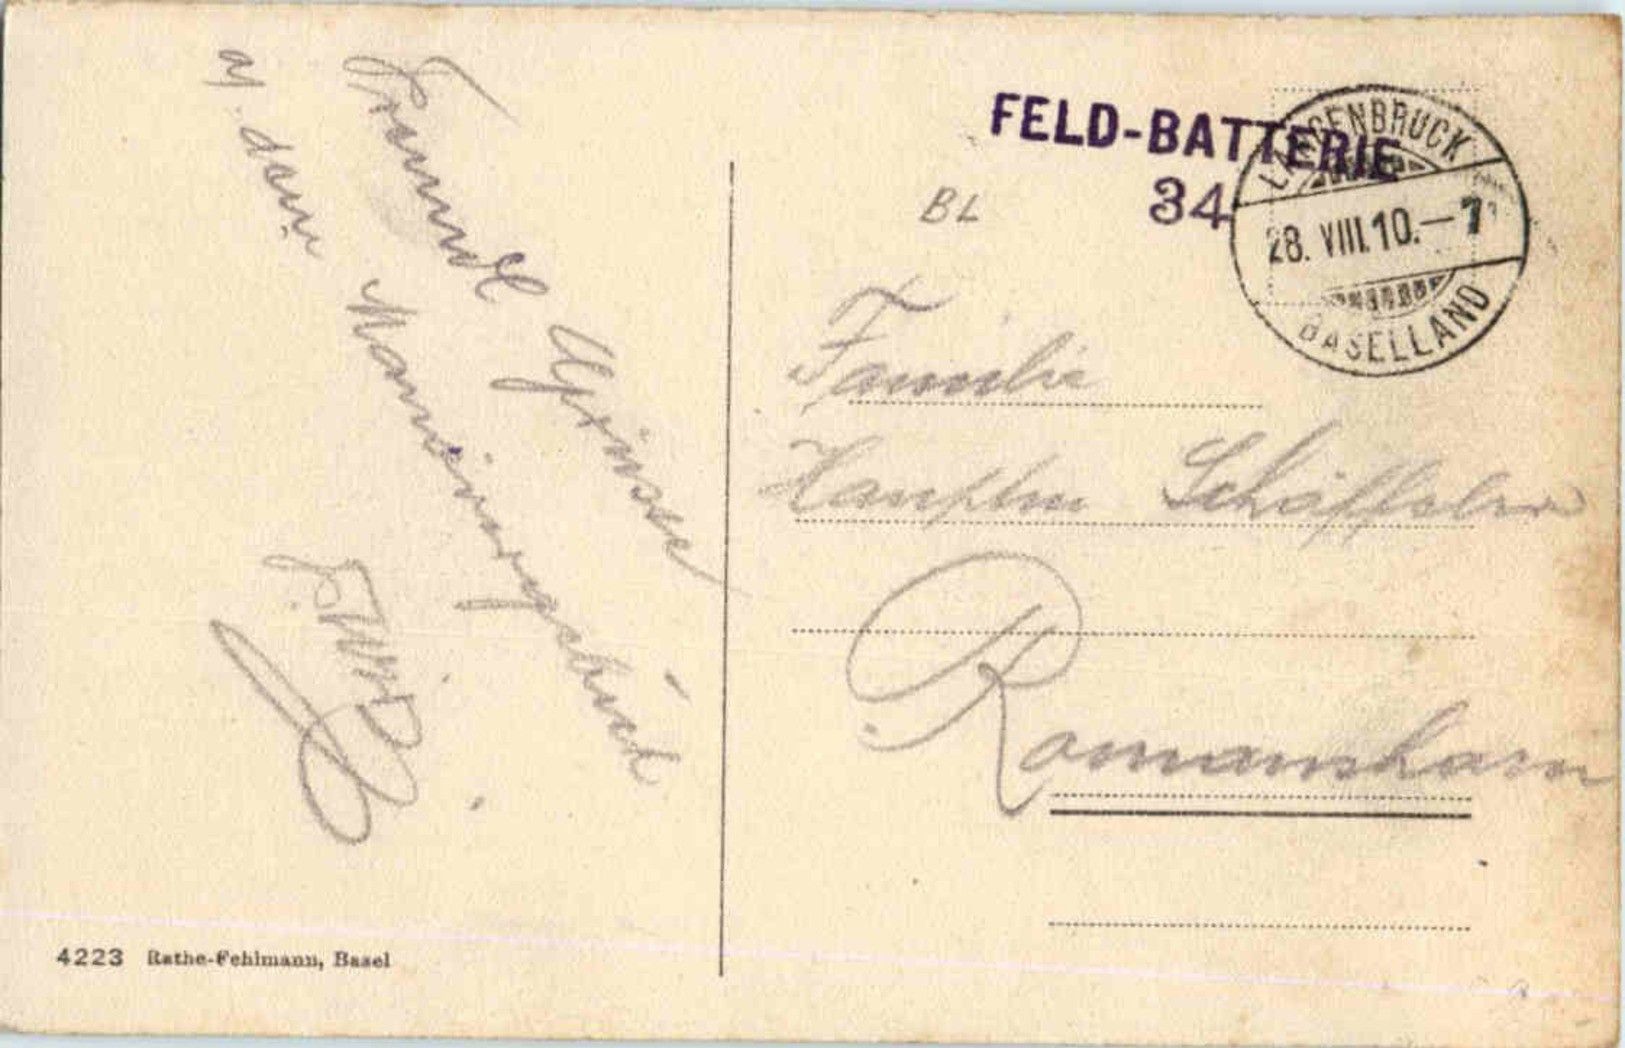 Freundl Grüsse
a/. dem Manöverfeld
FELD-BATTERIE
34
LANGENBRUCK
28. VIII. 10. — 7
BASELLAND
BL
Familie
Hauptm Schäffeler
Romanshorn
4223 Rathe-Fehlmann, Basel